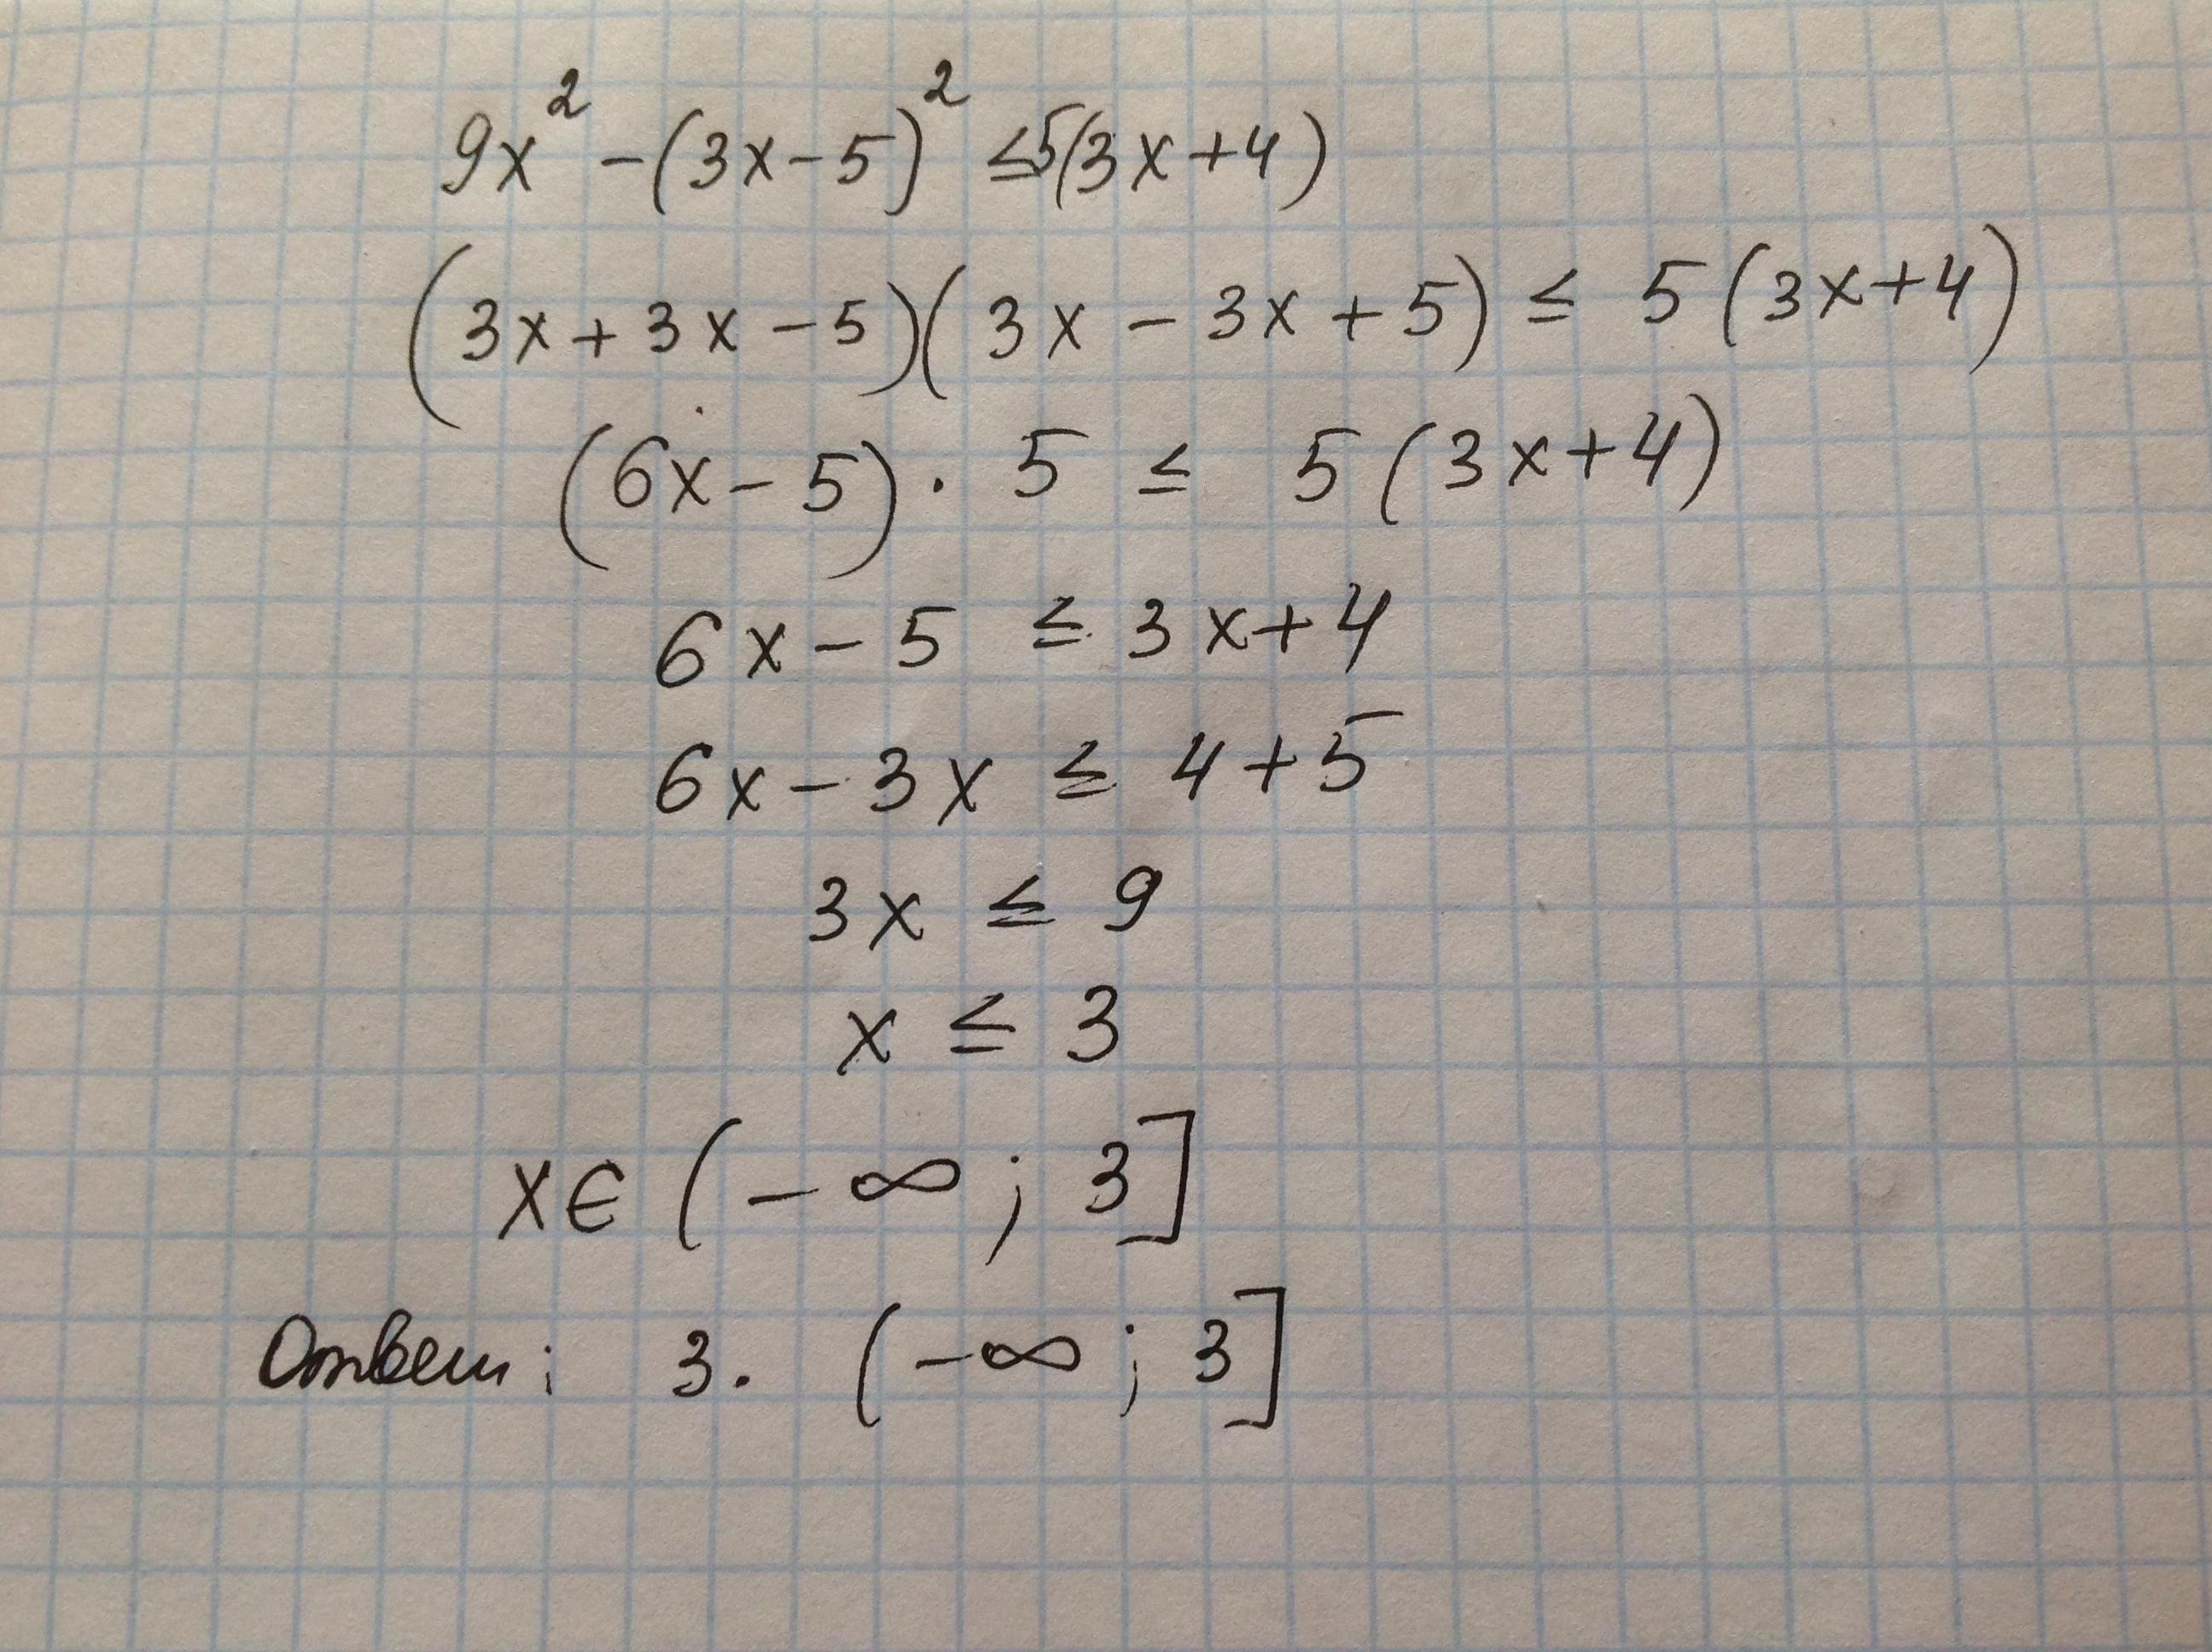 9x² - (3x - 5)² ≤ 5(3x + 4)
(3x + 3x - 5)(3x - 3x + 5) ≤ 5(3x + 4)
(6x - 5) · 5 ≤ 5(3x + 4)
6x - 5 ≤ 3x + 4
6x - 3x ≤ 4 + 5
3x ≤ 9
x ≤ 3
x ∈ (-∞; 3]
Ответ: 3. (-∞; 3]